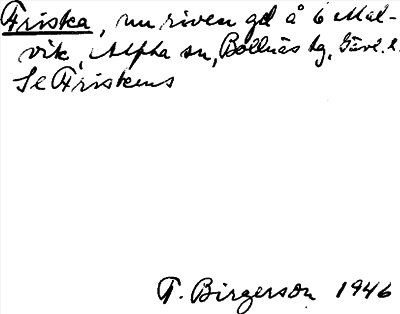 Friska, nu riven gd å 6 Mal-
vik, Alpha sn, Bollnäs tg, Gävl. l.
Se Friskens
T. Birgerson 1946